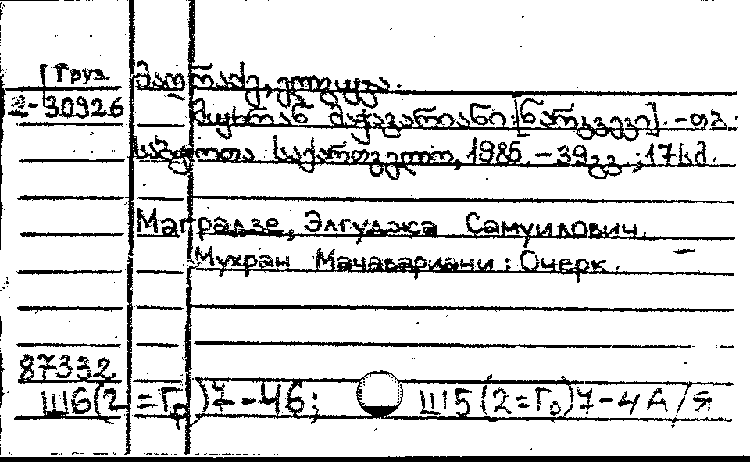 Груз. მაღრაძე, ელგუჯა.
2-30926 მუხრან მაჭავარიანი: [ნარკვევი]. - თბ.:
საბჭოთა საქართველო, 1986. - 39გვ.; 17სმ.
Маградзе, Элгуджа Самуилович.
Мухран Мачавариани: Очерк.
87332
Ш6(2=Гр)7-46; Ш5(2=Го)7-4 А/Я